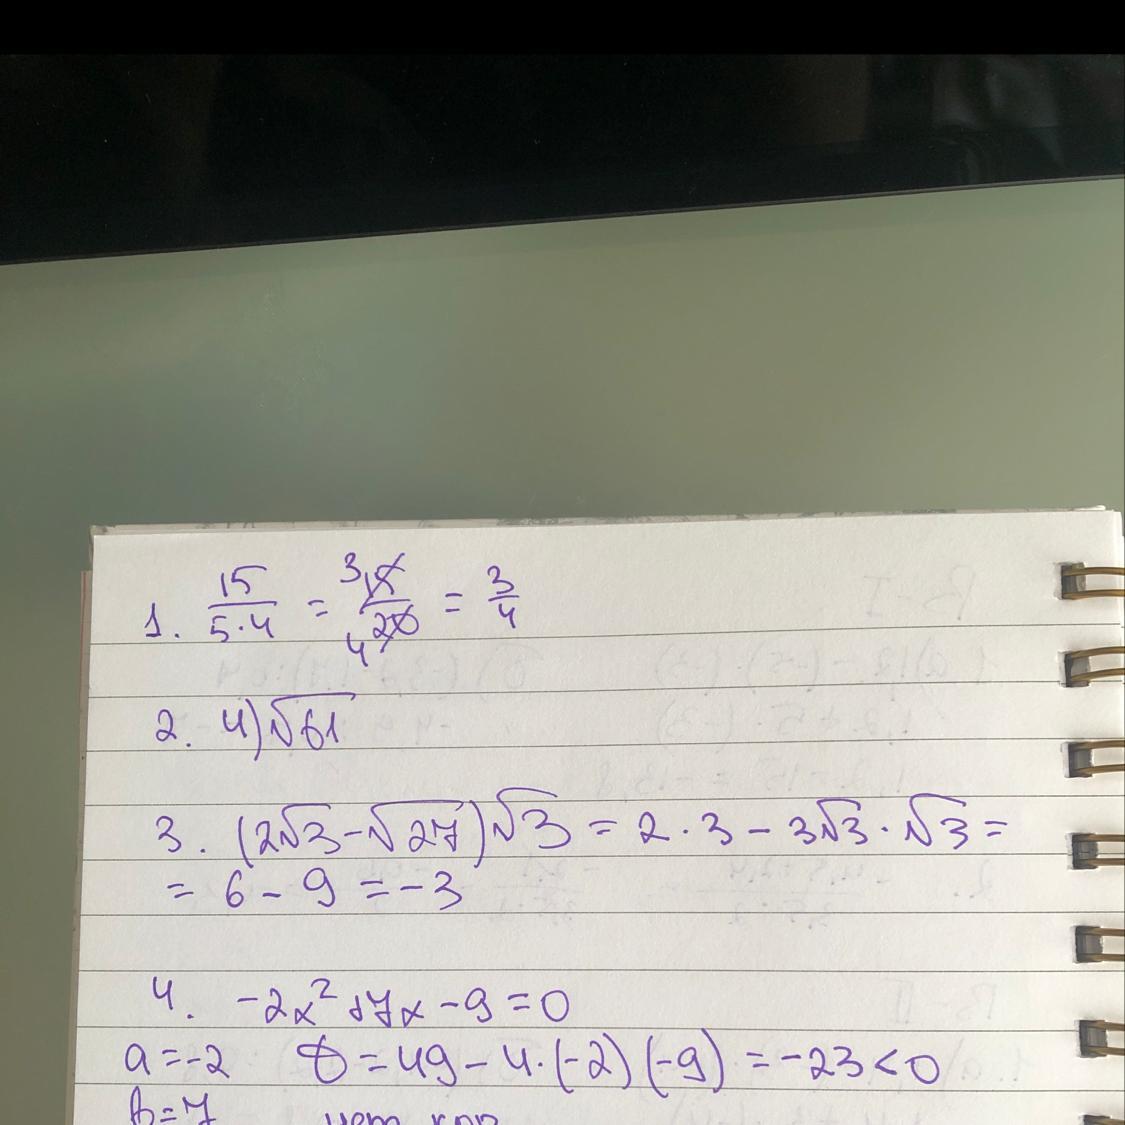 1. 15/5·4 = 3 15/20 4 = 3/4
2. 4) √61
3. (2√3 - √27)√3 = 2·3 - 3√3·√3 =
= 6 - 9 = -3
4. -2x² + 7x - 9 = 0
a = -2 D = 49 - 4·(-2)(-9) = -23 < 0
b = 7 нет кор